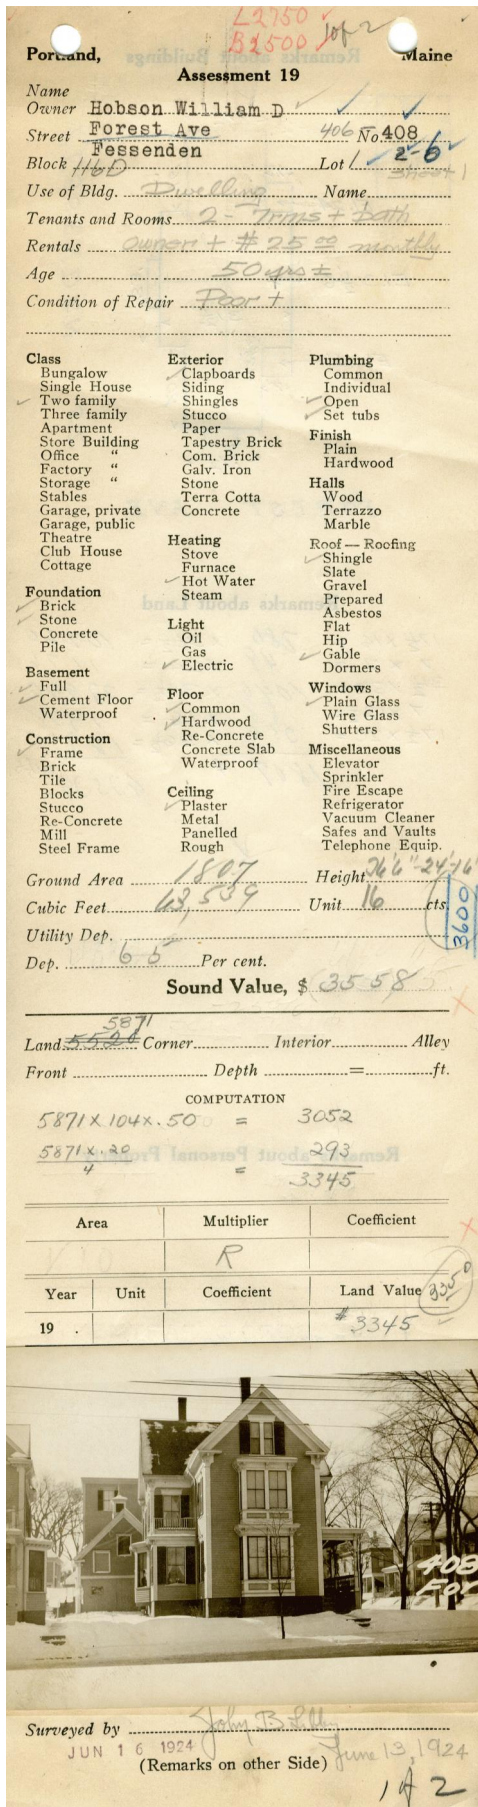 L2750
B2500
1 of 2
Portland, Maine
Assessment 19
Name
Owner Hobson William D
Street Forest Ave 406 No 408
Fessenden
Block 116D Lot 1 2-6
Sheet 1
Use of Bldg. Dwelling Name
Tenants and Rooms 2 - 7rms + bath
Rentals owner + $25 00 monthly
Age 50 yrs ±
Condition of Repair Poor +
Class
Bungalow
Single House
✓ Two family
Three family
Apartment
Store Building
Office "
Factory "
Storage "
Stables
Garage, private
Garage, public
Theatre
Club House
Cottage
Foundation
✓ Brick
✓ Stone
Concrete
Pile
Basement
✓ Full
✓ Cement Floor
Waterproof
Construction
✓ Frame
Brick
Tile
Blocks
Stucco
Re-Concrete
Mill
Steel Frame
Exterior
✓ Clapboards
Siding
Shingles
Stucco
Paper
Tapestry Brick
Com. Brick
Galv. Iron
Stone
Terra Cotta
Concrete
Heating
Stove
Furnace
✓ Hot Water
Steam
Light
Oil
Gas
✓ Electric
Floor
✓ Common
✓ Hardwood
Re-Concrete
Concrete Slab
Waterproof
Ceiling
✓ Plaster
Metal
Panelled
Rough
Plumbing
Common
Individual
✓ Open
✓ Set tubs
Finish
Plain
Hardwood
Halls
Wood
Terrazzo
Marble
Roof — Roofing
✓ Shingle
Slate
Gravel
Prepared
Asbestos
Flat
Hip
✓ Gable
Dormers
Windows
✓ Plain Glass
Wire Glass
Shutters
Miscellaneous
Elevator
Sprinkler
Fire Escape
Refrigerator
Vacuum Cleaner
Safes and Vaults
Telephone Equip.
Ground Area 1807 Height 36'6"-24'-16'
Cubic Feet 63,539 Unit 16 cts.
3600
Utility Dep.
Dep. 65 Per cent.
Sound Value, $ 3558
5871
Land 5520 Corner Interior Alley
Front Depth = ft.
COMPUTATION
5871 x 104 x .50 = 3052
5871 x .20 293
4 = 3345
Area Multiplier Coefficient
R
Year Unit Coefficient Land Value 3350
19 . $3345
408
For
Surveyed by John B Libby
JUN 16 1924 June 13, 1924
(Remarks on other Side)
1 of 2